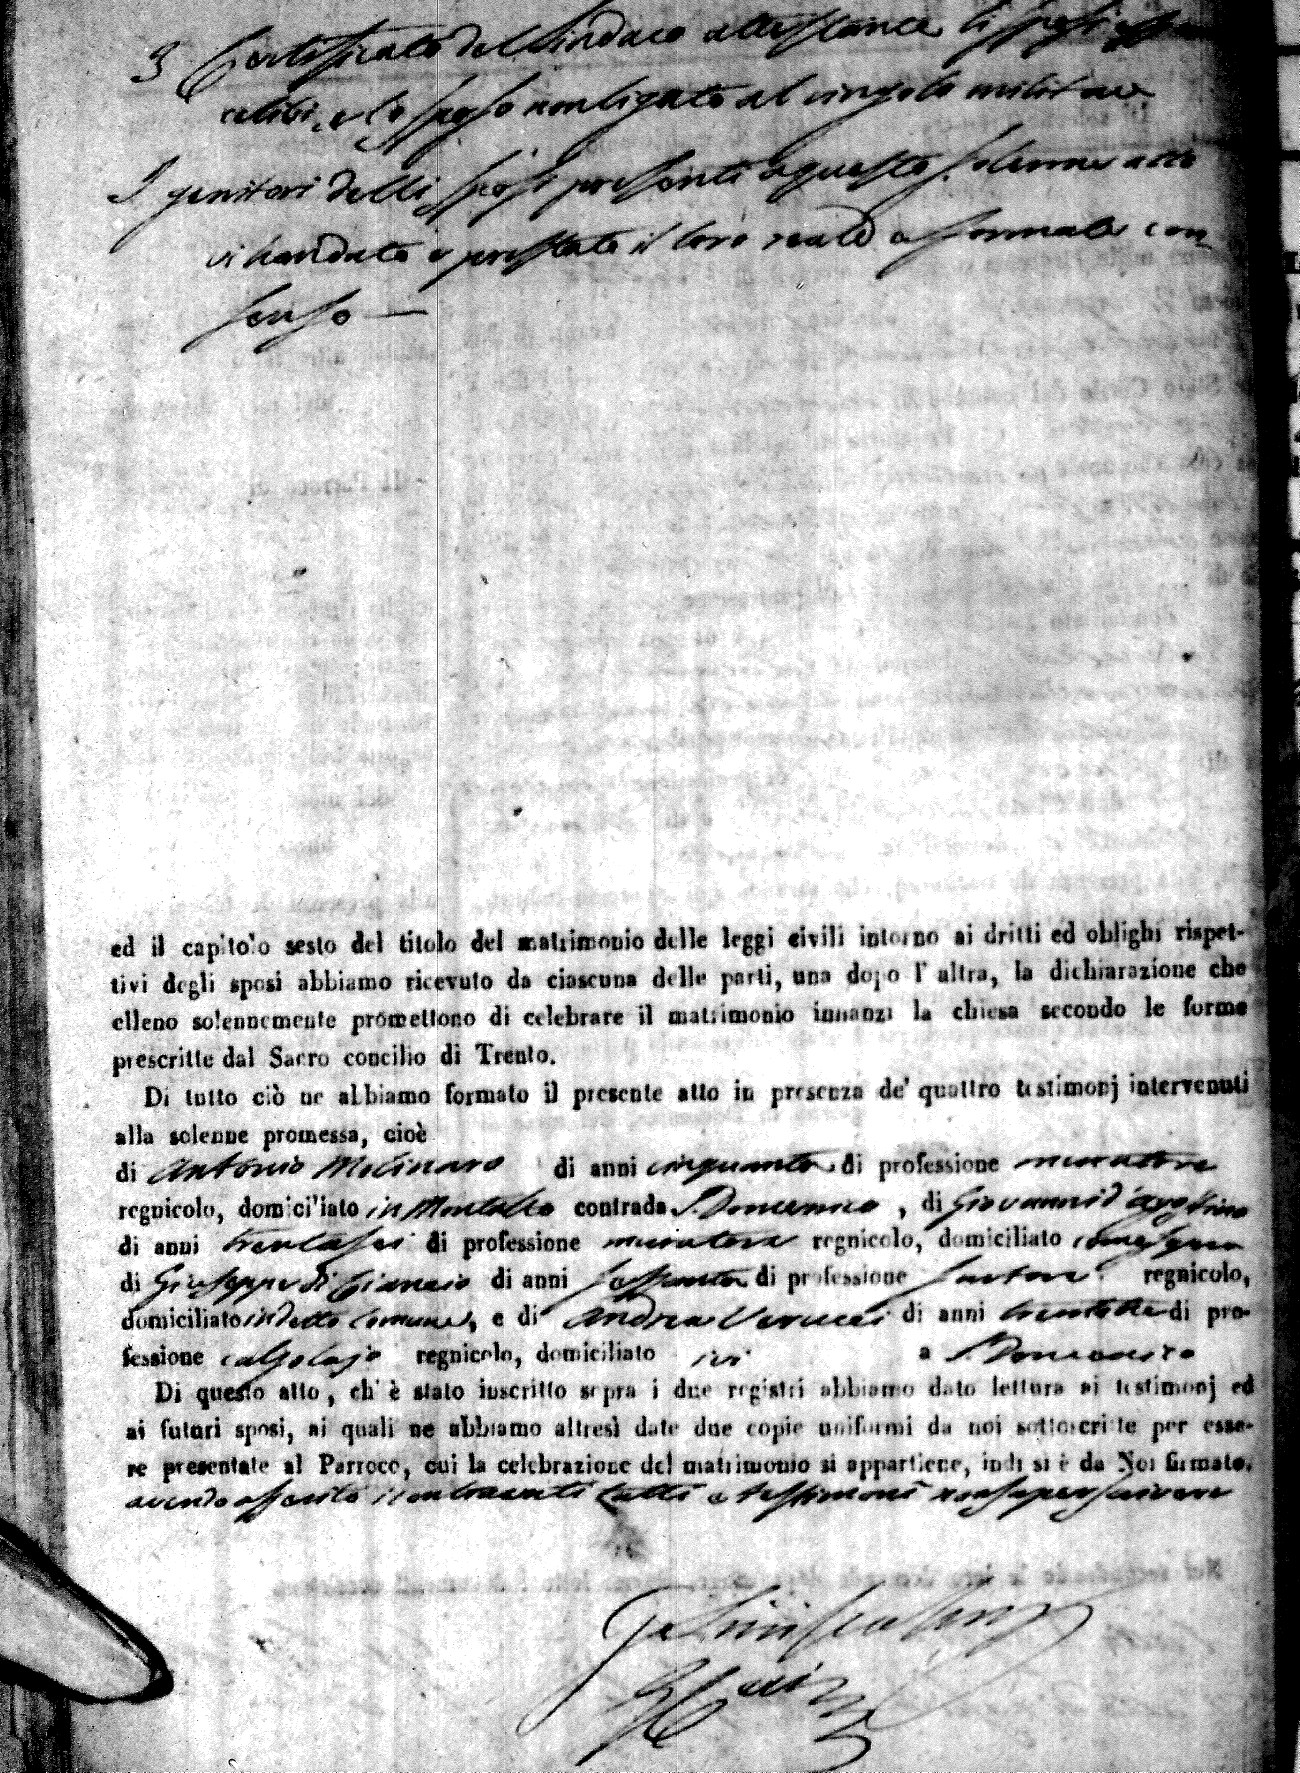 3 Certificato del Sindaco attestante li sposi essere
celibi, e lo sposo non ligato al cingolo militare
I genitori delli sposi presenti a questo solenne atto
vi han dato e prestato il loro reale e formale con
senso —
ed il capitolo sesto del titolo del matrimonio delle leggi civili intorno ai dritti ed oblighi rispet-
tivi degli sposi abbiamo ricevuto da ciascuna delle parti, una dopo l'altra, la dichiarazione che
elleno solennemente promettono di celebrare il matrimonio innanzi la chiesa secondo le forme
prescritte dal Sacro concilio di Trento.
Di tutto ciò ne abbiamo formato il presente atto in presenza de' quattro testimonj intervenuti
alla solenne promessa, cioè
di Antonio Molinaro di anni cinquanta di professione muratore
regnicolo, domiciliato in Montalto contrada S. Domenico, di Giovanni d'Agostino
di anni trentasei di professione muratore regnicolo, domiciliato come sopra
di Giuseppe di Ciancio di anni sessanta di professione sartore regnicolo,
domiciliato in detto comune, e di Andrea Verucci di anni trentotto di pro-
fessione calzolajo regnicolo, domiciliato ivi a S. Domenico
Di questo atto, ch'è stato inscritto sopra i due registri abbiamo dato lettura ai testimonj ed
ai futuri sposi, ai quali ne abbiamo altresì date due copie uniformi da noi sottoscritte per esse-
re presentate al Parroco, cui la celebrazione del matrimonio si appartiene, indi si è da Noi firmato,
avendo asserito i contraenti tutti e testimoni non saper scrivere